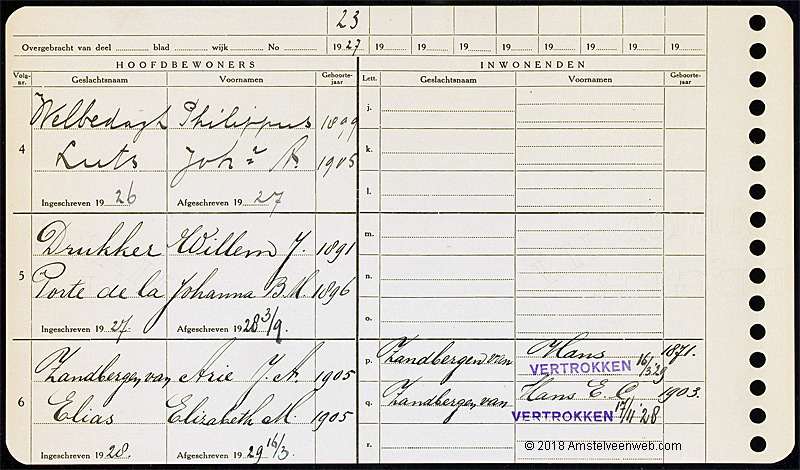 23
Overgebracht van deel blad wijk No 1927 19 19 19 19 19 19 19 19
HOOFDBEWONERS INWONENDEN
Volg-nr. Geslachtsnaam Voornamen Geboorte-jaar Lett. Geslachtsnaam Voornamen Geboorte-jaar
4
Welbedagt Philippus 1899 j.
Luts Joha A. 1905 k.
Ingeschreven 1926 Afgeschreven 1927 l.
5
Drukker Willem J. 1891 m.
Porte de la Johanna B M. 1896 n.
Ingeschreven 1927. Afgeschreven 1928 3/9. o.
6
Zandbergen, van Arie J. A. 1905 p. Zandbergen van Hans 1871.
VERTROKKEN 16/3 29
Elias Elizabeth M. 1905 q. Zandbergen, van Hans E. C. 1903.
VERTROKKEN 17/11 '28
Ingeschreven 1928. Afgeschreven 1929 16/3. r.
© 2018 Amstelveenweb.com